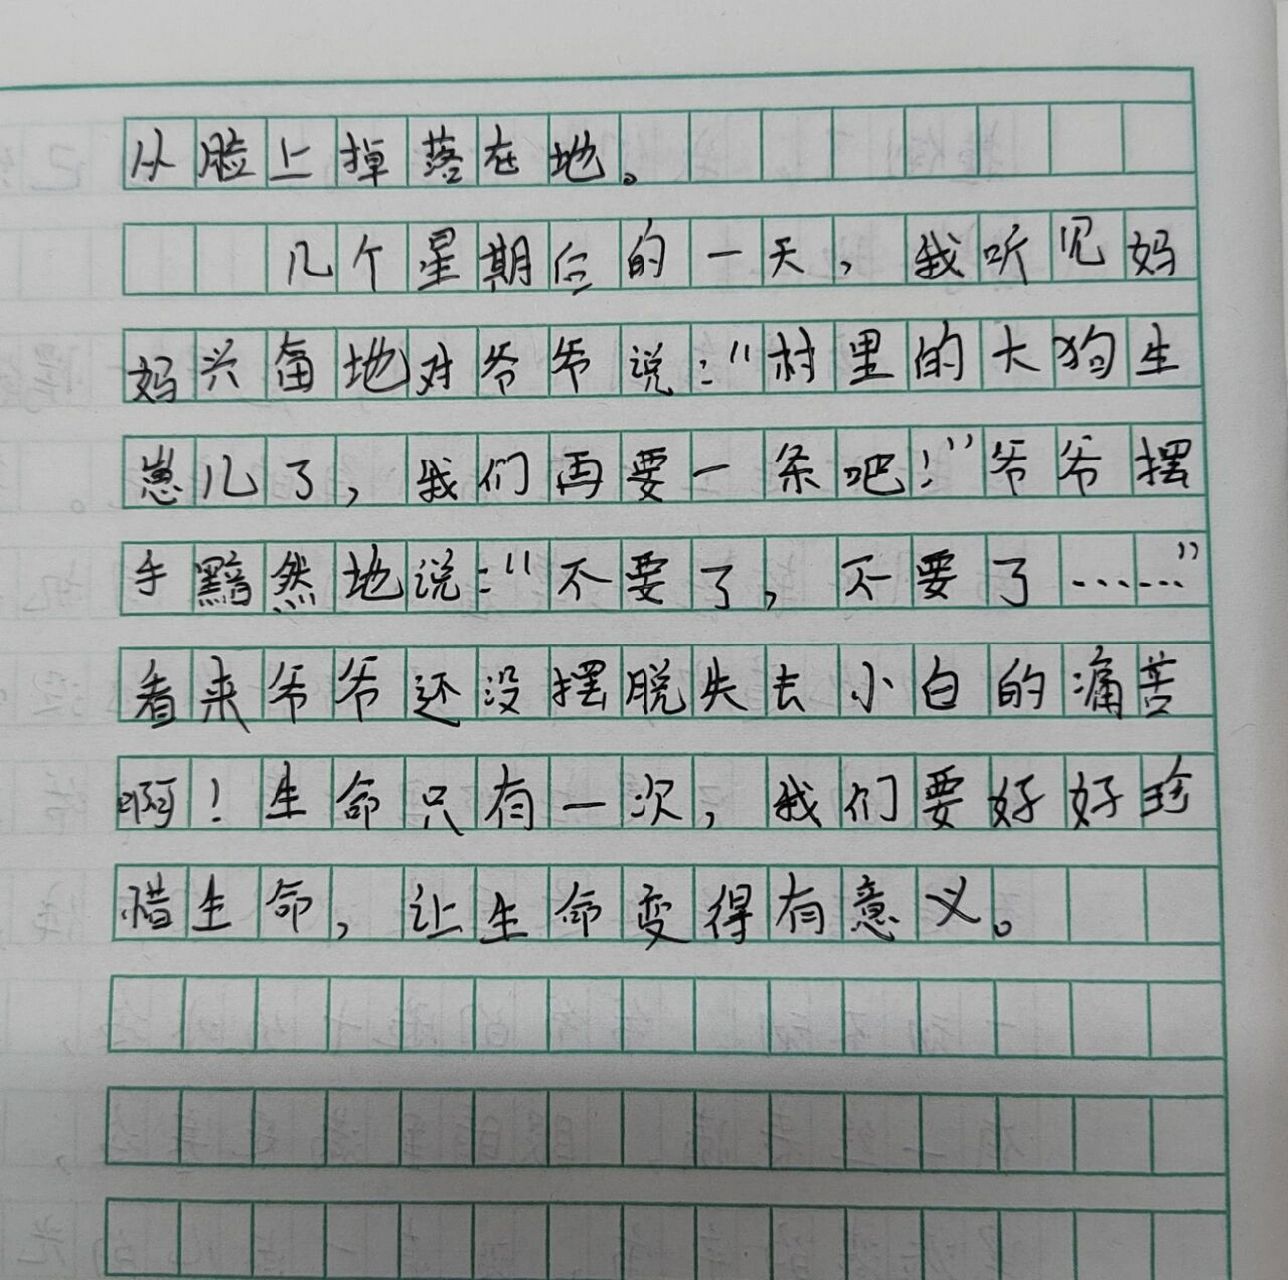 从脸上掉落在地。
几个星期后的一天，我听见妈
妈兴奋地对爷爷说：“村里的大狗生
崽儿了，我们再要一条吧！”爷爷摆
手黯然地说：“不要了，不要了……”
看来爷爷还没摆脱失去小白的痛苦
啊！生命只有一次，我们要好好珍
惜生命，让生命变得有意义。